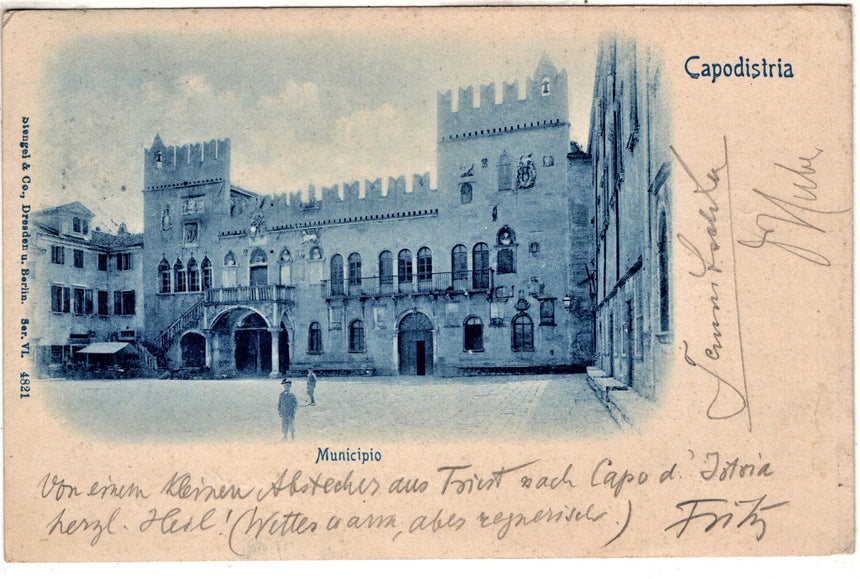 Capodistria
Stengel & Co., Dresden u. Berlin. Ser. VI. 4821
Municipio
Von einem kleinen Abstecher aus Triest nach Capo d' Istria
herzl. Heil! (Wetter warm, aber regnerisch.) Fritz